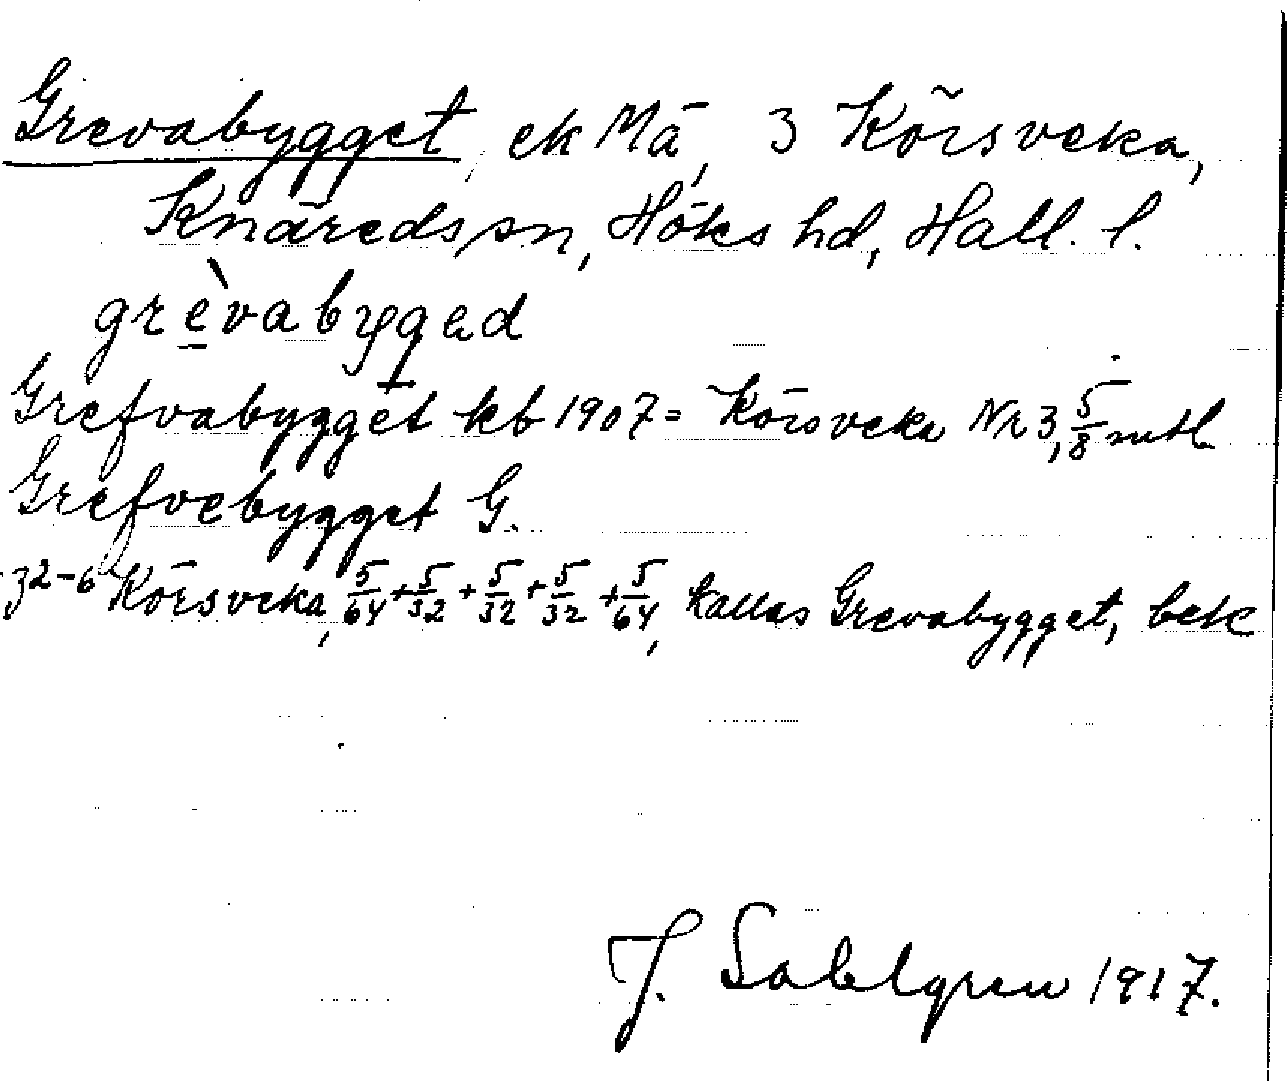 Grevabygget, ek Mä, 3 Körsveka,
Knäreds sn, Höks hd, Hall. l.
grèvabygəd
Grefvabygget kb 1907 = Körsveka Nr 3, 5/8 mtl
Grefvebygget G.
3²⁻⁶ Körsveka, 5/64 + 5/32 + 5/32 + 5/32 + 5/64, kallas Grevabygget, bek
J. Sahlgren 1917.